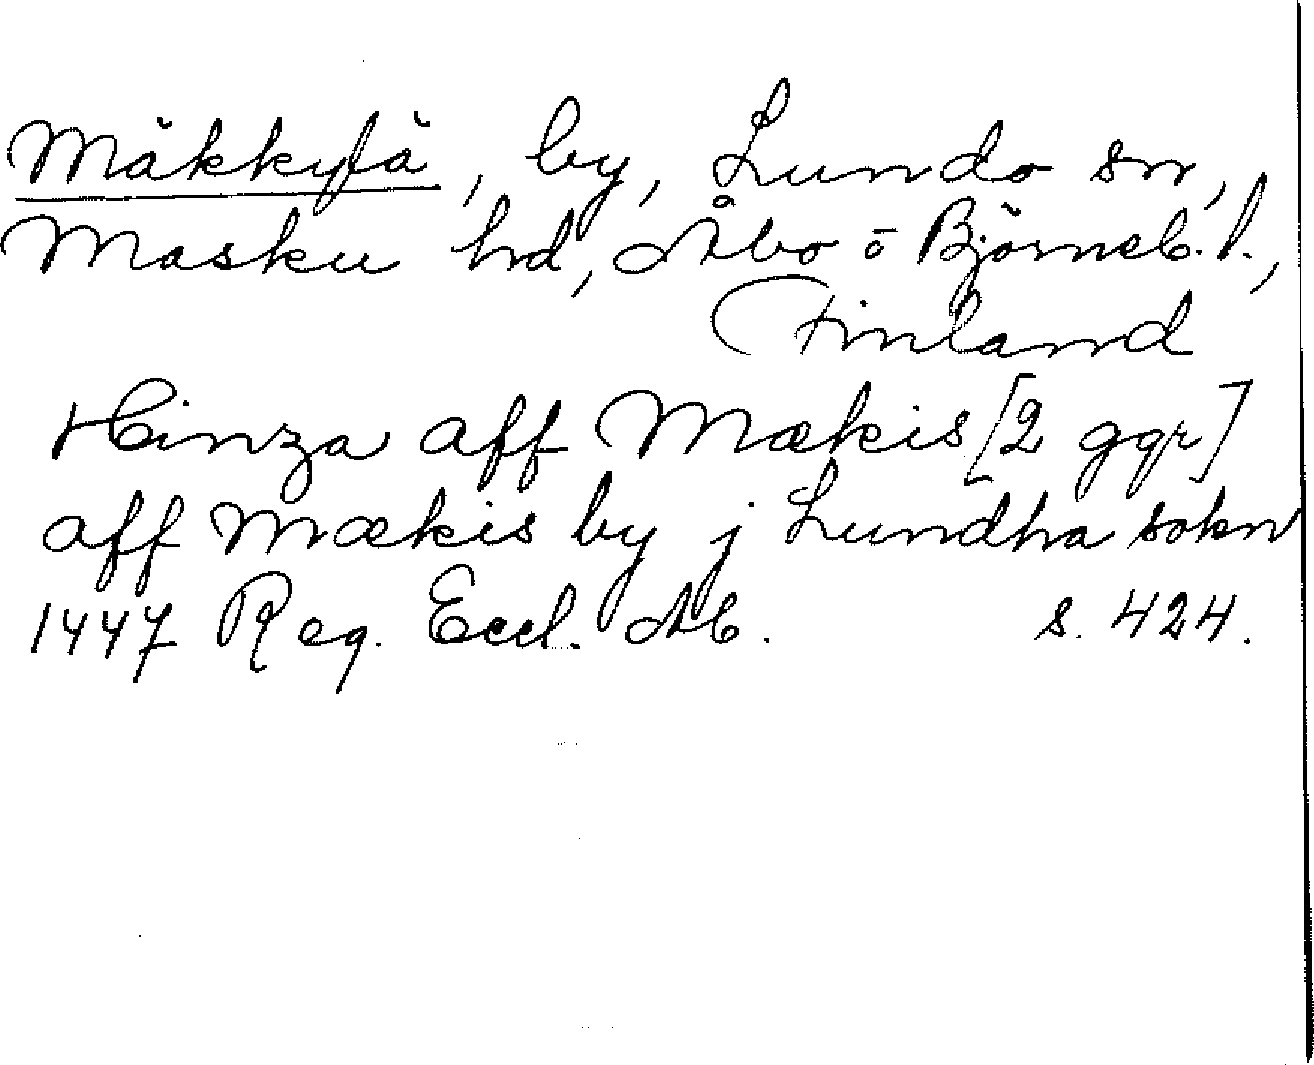 Mäkkylä, by, Lundo sn,
Masku hd, Åbo o Björneb. l.,
Finland
Hinza aff Mækis [2 ggr]
aff Mækis by j Lundha sokn
1447 Reg. Eccl. Ab. s. 424.